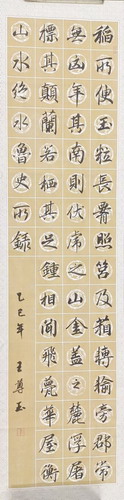 稻所便玉粒長霄照筥及箱轉輸旁郡常
無凶年其南則伏虎之山金蓋之麓浮屠
標其顛蘭若棲其足鍾相聞飛甍華屋衡
山水絕水魯史所錄
乙巳年 王尊玉